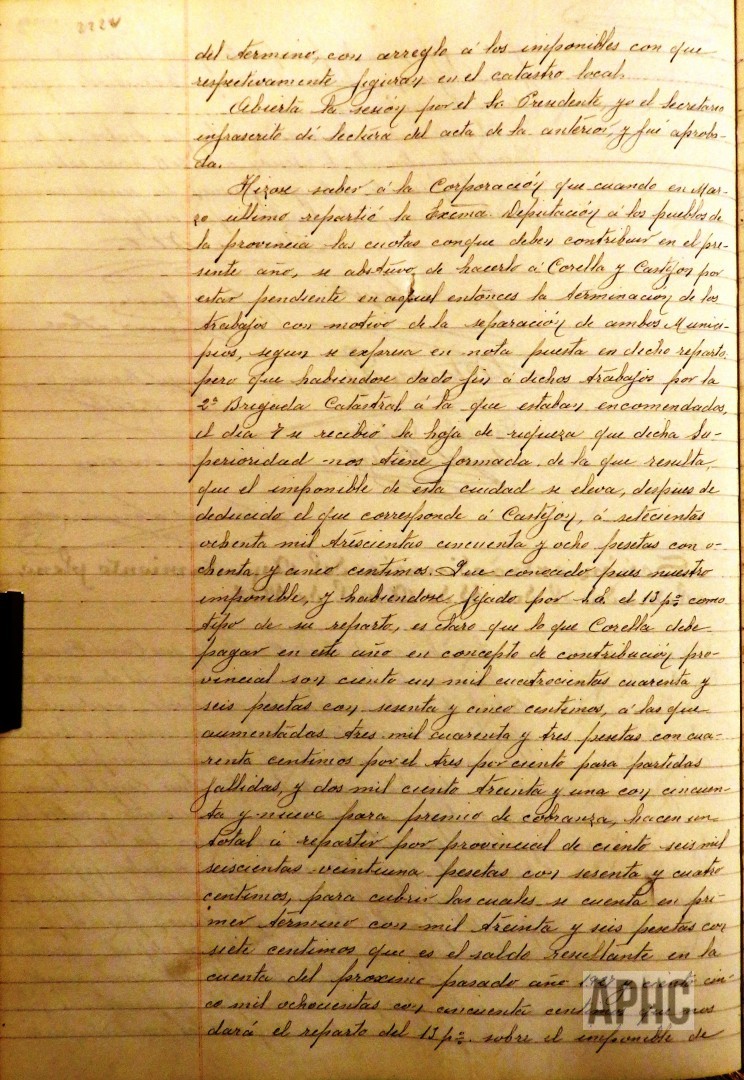 222v
del termino, con arreglo á los imponibles con que
respectivamente figuran en el catastro local.
Abierta la sesion por el Sr Presidente, yo el Secretario
infrascrito dí lectura del acta de la anterior, y fué aproba-
da.
Hizose saber á la Corporación que cuando en Mar-
zo ultimo repartió la Excma. Deputación á los pueblos de
la provincia las cuotas conque deben contribuir en el pre-
sente año, se abstuvo de hacerlo á Corella y Castejon por
estar pendiente en aquel entonces la terminacion de los
trabajos con motivo de la separación de ambos Munici-
pios, segun se expresa en nota puesta en dicho reparto,
pero que habiendose dado fin á dichos trabajos por la
2ª Brigada Catastral á la que estaban encomendados,
el dia 7 se recibió la hoja de riqueza que dicha Su-
perioridad nos tiene formada, de la que resulta,
que el imponible de esta ciudad se eleva, despues de
deducido el que corresponde á Castejon, á setecientas
ochenta mil trescientas cincuenta y ocho pesetas con o-
chenta y cinco centimos. Que conocido pues nuestro
imponible, y habiendose fijado por S.E. el 13 p% como
tipo de su reparto, es claro que lo que Corella debe
pagar en este año en concepto de contribución pro-
vincial son ciento un mil cuatrocientas cuarenta y
seis pesetas con sesenta y cinco centimos, á las que
aumentadas tres mil cuarenta y tres pesetas con cua-
renta centimos por el tres por ciento para partidas
fallidas, y dos mil ciento treinta y una con cincuen-
ta y nueve para premio de cobranza, hacen un
total á repartir por provincial de ciento seis mil
seiscientas veintiuna pesetas con sesenta y cuatro
centimos, para cubrir las cuales se cuenta en pri-
mer término con mil treinta y seis pesetas con
siete centimos que es el saldo resultante en la
cuenta del proximo pasado año y ciento cin-
co mil ochocientas con cincuenta que nos
dará el reparto del 13 p% sobre el imponible de
APHC